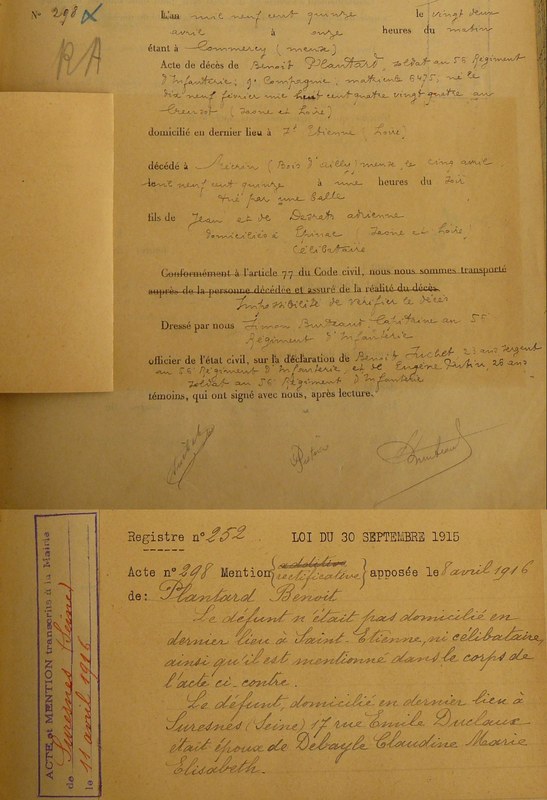 N° 298
RA
L'an mil neuf cent quinze le vingt deux
avril à onze heures du matin
étant à Commercy (meuse)
Acte de décès de Benoit Plantard, soldat au 56 Régiment
d'Infanterie, 9e Compagnie, matricule 5475, né le
dix neuf février mil huit cent quatre vingt quatre au
Creusot (Saone et Loire)
domicilié en dernier lieu à St Etienne (Loire)
décédé à Mécrin (Bois d'ailly) meuse, le cinq avril
mil neuf cent quinze à une heures du soir
tué par une balle
fils de Jean et de Adrienne
domiciliés à Saone et Loire
Célibataire
Conformément à l'article 77 du Code civil, nous nous sommes transporté
auprès de la personne décédée et assuré de la réalité du décès.
Impossibilité de vérifier le décès
Dressé par nous Simon, Capitaine au 56
Régiment d'Infanterie
officier de l'état civil, sur la déclaration de Benoit 21 ans sergent
au 56 Régiment d'Infanterie, et de Eugène 28 ans
soldat au 56 Régiment d'Infanterie
témoins, qui ont signé avec nous, après lecture.
Registre n° 252 LOI DU 30 SEPTEMBRE 1915
Acte n° 298 Mention additive rectificative apposée le 8 avril 1916
de: Plantard Benoit
Le défunt n'était pas domicilié en
dernier lieu à Saint-Etienne, ni célibataire,
ainsi qu'il est mentionné dans le corps de
l'acte ci-contre.
Le défunt, domicilié en dernier lieu à
Suresnes (Seine) 17 rue Emile Duclaux
était époux de Debayle Claudine Marie
Elisabeth.
ACTE et MENTION transcrits à la Mairie
de Suresnes (Seine)
le 11 avril 1916